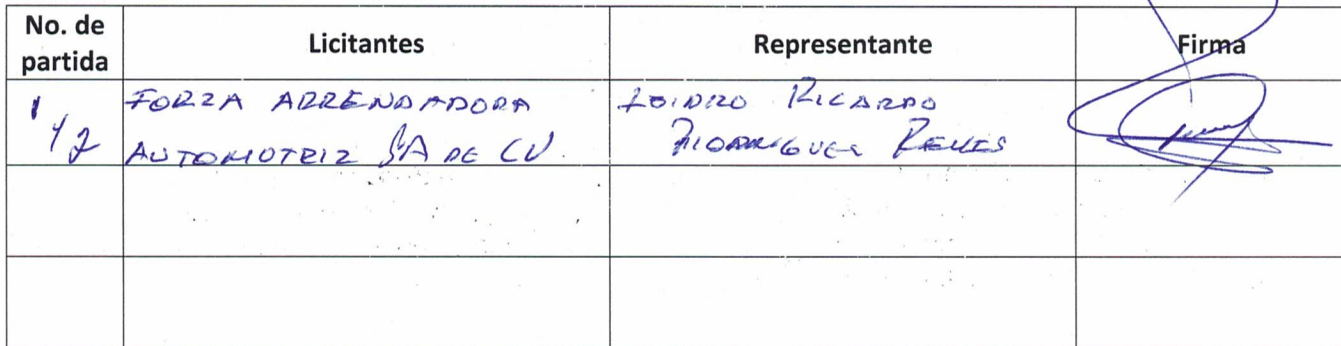 No. de partida
Licitantes
Representante
Firma
1 y 2
FORZA ARRENDADORA
AUTOMOTRIZ SA DE CV.
ISIDRO RICARDO
RODRIGUEZ REYES